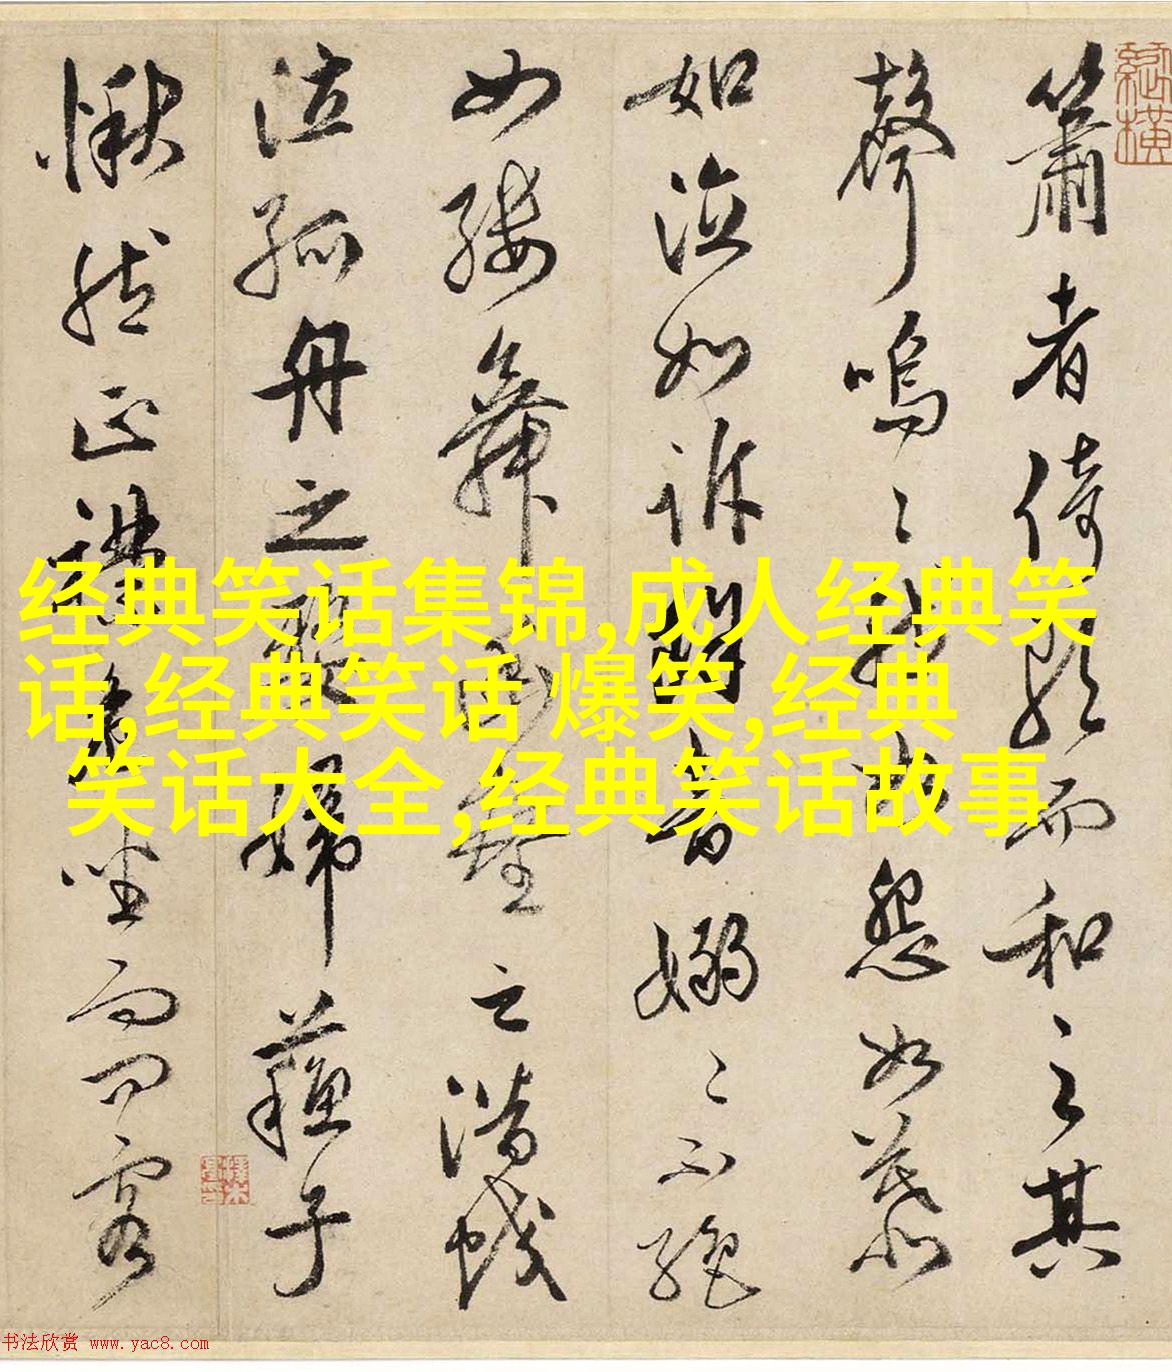 簫者倚歌而和之其
聲嗚〻然如怨如慕
如泣如訴餘音嫋〻不絕
如縷舞幽壑之潛蛟
泣孤舟之嫠婦蘇子
愀然正襟危坐而問客
经典笑话集锦,成人经典笑
话,经典笑话 爆笑,经典
笑话大全,经典笑话故事
书法欣赏 www.yac8.com